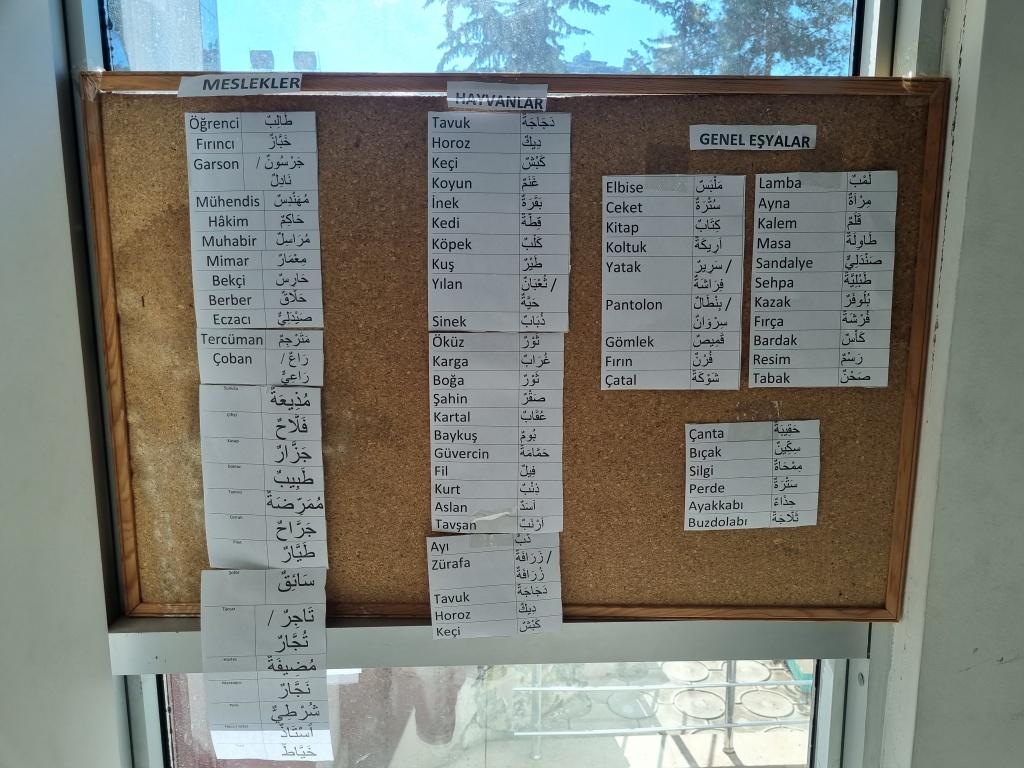 MESLEKLER
Öğrenci طَالِبٌ
Fırıncı خَبَّازٌ
Garson جَرْسُونٌ /
نَادِلٌ
Mühendis مُهَنْدِسٌ
Hâkim حَاكِمٌ
Muhabir مُرَاسِلٌ
Mimar مِعْمَارٌ
Bekçi حَارِسٌ
Berber حَلَّاقٌ
Eczacı صَيْدَلِيٌّ
Tercüman مُتَرْجِمٌ
Çoban رَاعٌ /
رَاعِيٌّ
مُذِيعَةٌ
فَلَّاحٌ
جَزَّارٌ
طَبِيبٌ
مُمَرِّضَةٌ
جَرَّاحٌ
طَيَّارٌ
سَائِقٌ
تَاجِرٌ /
تُجَّارٌ
مُضِيفَةٌ
نَجَّارٌ
شُرْطِيٌّ
أُسْتَاذٌ
خَيَّاطٌ
HAYVANLAR
Tavuk دَجَاجَةٌ
Horoz دِيكٌ
Keçi كَبْشٌ
Koyun غَنَمٌ
İnek بَقَرَةٌ
Kedi قِطَّةٌ
Köpek كَلْبٌ
Kuş طَيْرٌ
Yılan ثُعْبَانٌ /
حَيَّةٌ
Sinek ذُبَابٌ
Öküz ثَوْرٌ
Karga غُرَابٌ
Boğa ثَوْرٌ
Şahin صَقْرٌ
Kartal عُقَابٌ
Baykuş بُومٌ
Güvercin حَمَامَةٌ
Fil فِيلٌ
Kurt ذِئْبٌ
Aslan أَسَدٌ
Tavşan أَرْنَبٌ
Ayı دُبٌّ
Zürafa زَرَافَةٌ /
زُرَافَةٌ
Tavuk دَجَاجَةٌ
Horoz دِيكٌ
Keçi كَبْشٌ
GENEL EŞYALAR
Elbise مَلْبَسٌ
Ceket سُتْرَةٌ
Kitap كِتَابٌ
Koltuk أَرِيكَةٌ
Yatak سَرِيرٌ /
فِرَاشَةٌ
Pantolon بِنْطَالٌ /
سِرْوَانٌ
Gömlek قَمِيصٌ
Fırın فُرْنٌ
Çatal شَوْكَةٌ
Lamba لَمْبٌ
Ayna مِرْآةٌ
Kalem قَلَمٌ
Masa طَاوِلَةٌ
Sandalye صَنْدَلِيٌّ
Sehpa طَبْلِيَّةٌ
Kazak بُلُوفَرٌ
Fırça فُرْشَةٌ
Bardak كَأْسٌ
Resim رَسْمٌ
Tabak صَحْنٌ
Çanta حَقِيبَةٌ
Bıçak سِكِّينٌ
Silgi مِمْحَاةٌ
Perde سَتْرَةٌ
Ayakkabı حِذَاءٌ
Buzdolabı ثَلَّاجَةٌ